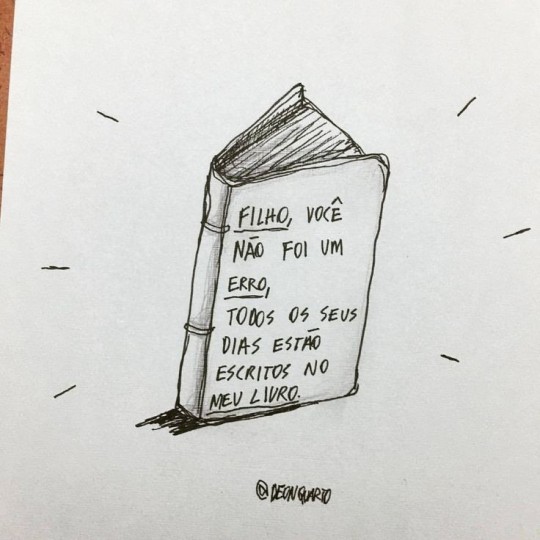 FILHO, VOCÊ
NÃO FOI UM
ERRO,
TODOS OS SEUS
DIAS ESTÃO
ESCRITOS NO
MEU LIVRO.
@DEONQUARTO